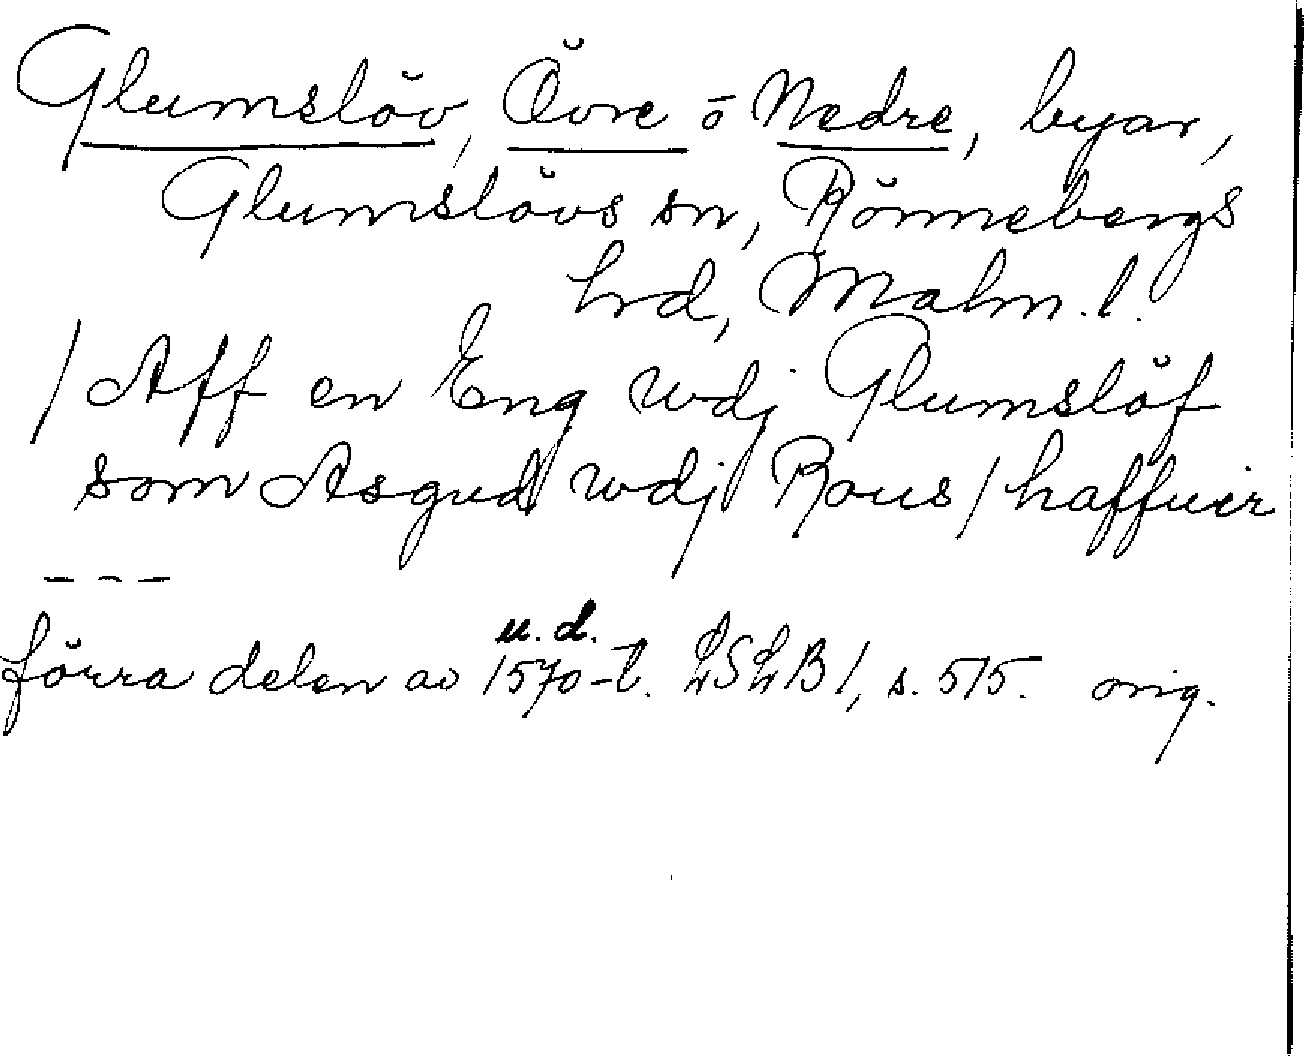 Glumslöv, Övre o Nedre, byar,
Glumslövs sn, Rönnebergs
hrd, Malm. l.
/ Aff en Eng wdj Glumslöf
som Asgud wdj Rous / haffuer
---
u.d.
förra delen av 1570-t. LSLB 1, s. 515. orig.